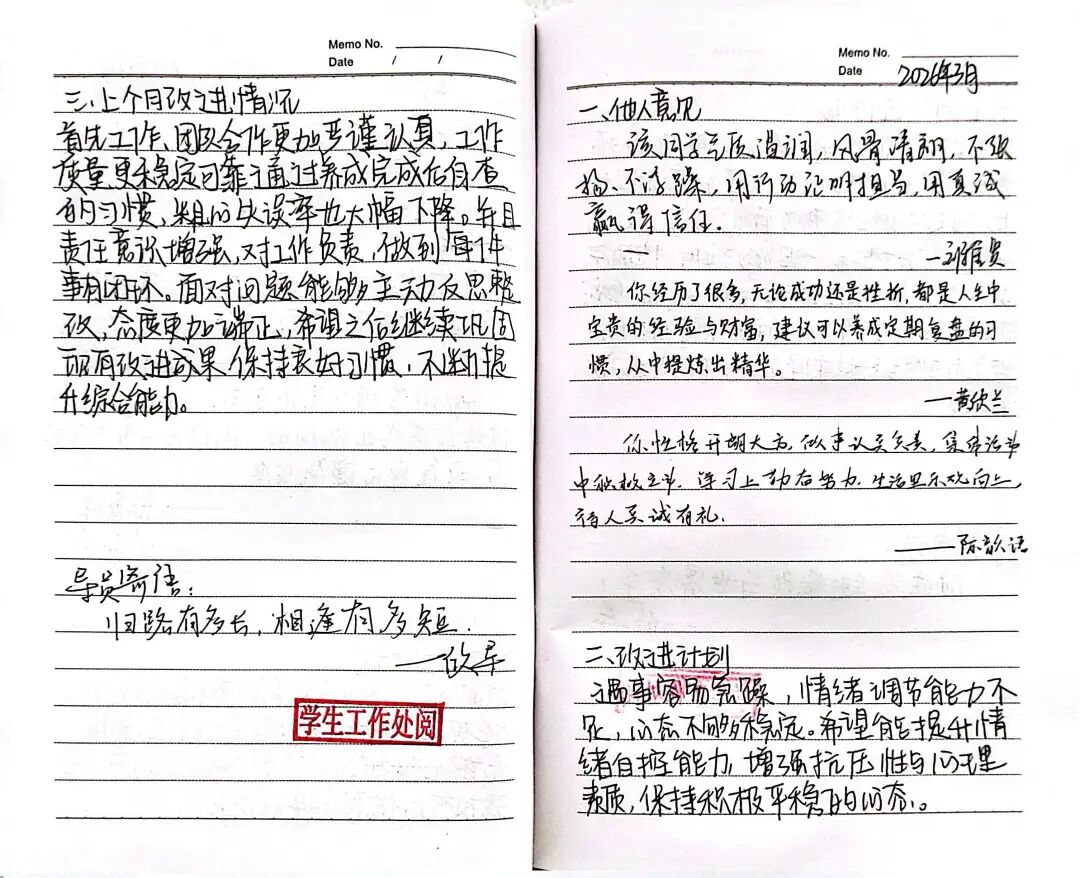 Memo No.
Date / /
三、上个月改进情况
首先工作、团队合作更加严谨认真，工作
质量更稳定可靠，通过养成完成后自查
的习惯，粗心失误率也大幅下降。并且
责任意识增强，对工作负责，做到每件
事有闭环。面对问题能够主动反思整
改，态度更加端正，希望之后继续巩固
所有改进成果，保持良好习惯，不断提
升综合能力。
导员寄语：
归路有多长，相逢有多短。
学生工作处阅
Memo No.
Date 2026年3月
一、他人意见
该同学气质温润，风骨清朗，不张
扬、不浮躁，用行动证明担当，用真诚
赢得信任．
你经历了很多，无论成功还是挫折，都是人生中
宝贵的经验与财富，建议可以养成定期复盘的习
惯，从中提炼出精华。
——黄欣兰
你性格开朗大方，做事认真负责，集体活动
中积极主动．学习上勤奋努力．生活里乐观向上，
待人真诚有礼．
——陈歆语
二、改进计划
遇事容易急躁，情绪调节能力不
足，心态不够稳定。希望能提升情
绪自控能力，增强抗压性与心理
素质，保持积极平稳的心态。